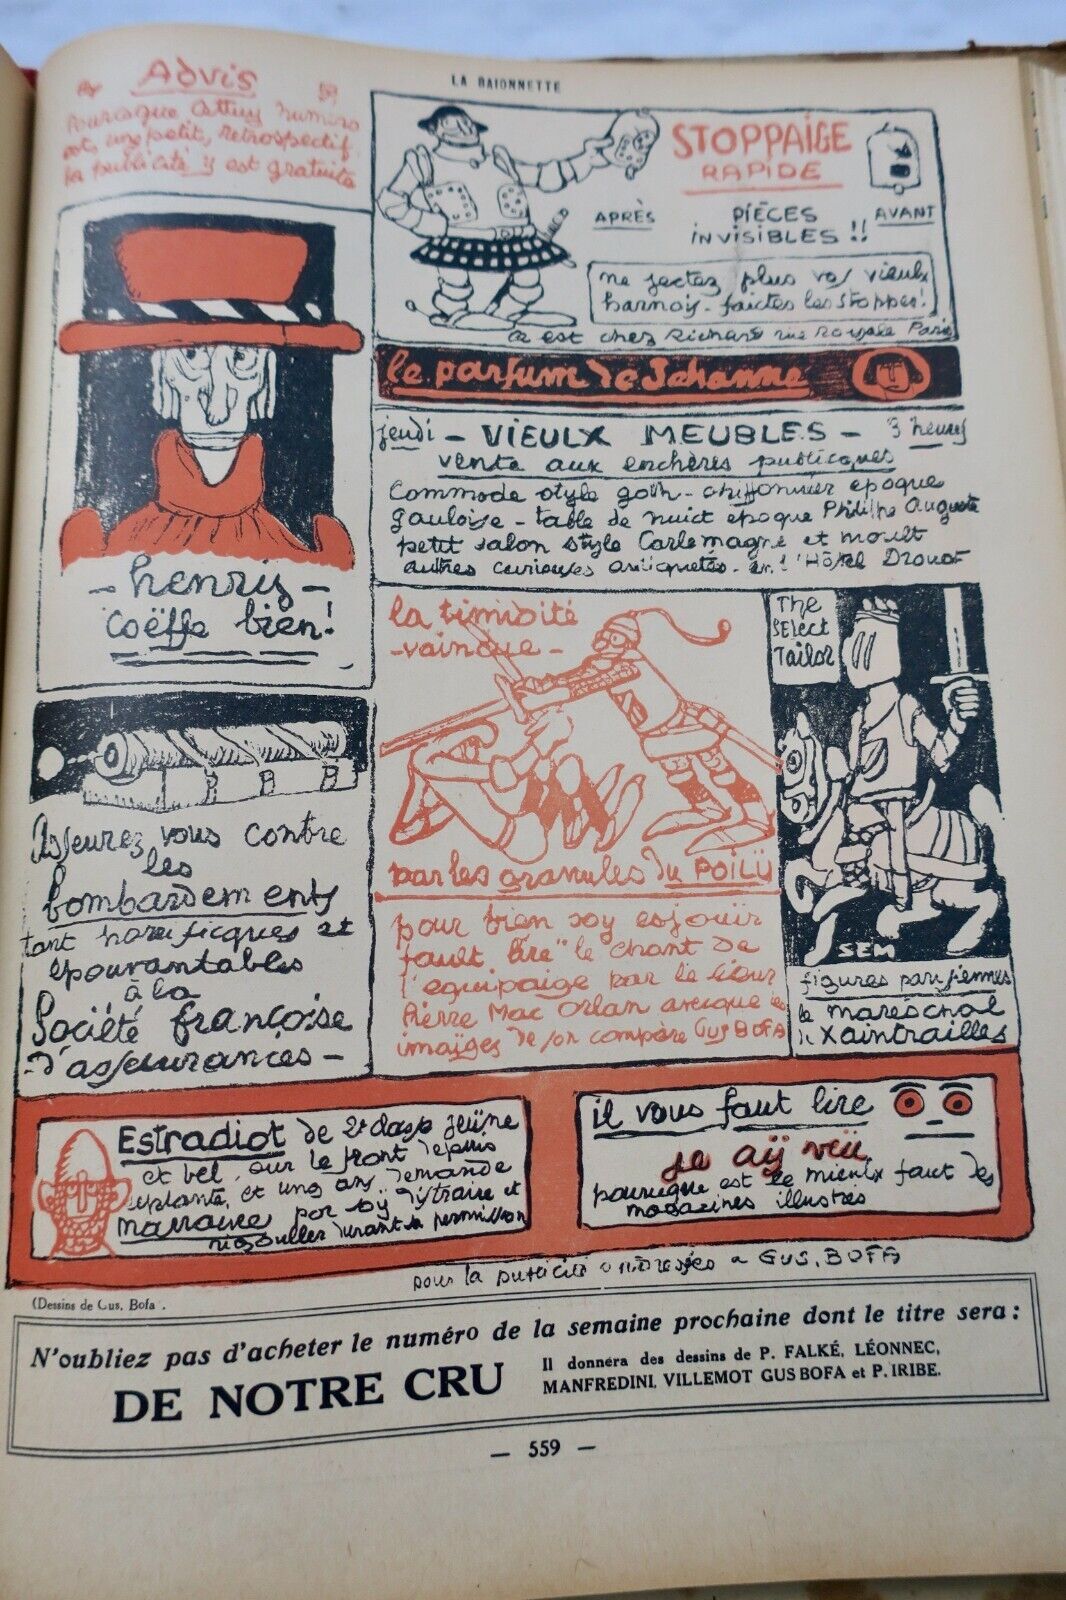 LA BAIONNETTE
Advis
Pourcęque Cettuy numéro
est, ung petit, retrospectif
la publicité y est gratuite
STOPPAIGE
RAPIDE
APRÈS
PIÈCES
INVISIBLES !!
AVANT
ne jectez plus vos vieulx
harnoys - faictes les stopper!
Ce est chez Richard rue Royale Paris
le parfum de Jehanne
henrys
coëffe bien!
jeudi - VIEULX MEUBLES - 3 heures
vente aux enchères publicques
Commode style goth - chiffonnier epoque
gauloise - table de nuict epoque Philippe Auguste
petit salon style Carlemagne et moult
autres curieuses antiquetés - en l'Hôtel Drouot
la timidité
- vaincue -
par les granules du POILÜ
The
SElect
Tailor
SEM
figures parisiennes
le mareschal
de Xaintrailles
Asseurez vous contre
les
bombardements
tant horrificques et
épouvantables
à la
Société françoise
- d'asseurances -
pour bien soy esjouïr
fault lire "le chant de
l'equipaige par le sieur
Pierre Mac Orlan avecque les
imaïges de son compère GUS BOFA
EStradiot de 2e classe jeüne
et bel, sur le front depuis
ung an, demande
marraine por soÿ distraire et
rigouller durant sa permission
il vous faut lire
je aÿ veü
pourcęque est le mieulx faut des
magazines illustrés
pour la publicité s'adresser a GUS. BOFA
(Dessins de Gus. Bofa).
N'oubliez pas d'acheter le numéro de la semaine prochaine dont le titre sera :
DE NOTRE CRU
Il donnera des dessins de P. FALKÉ, LÉONNEC,
MANFREDINI, VILLEMOT GUS BOFA et P. IRIBE.
— 559 —